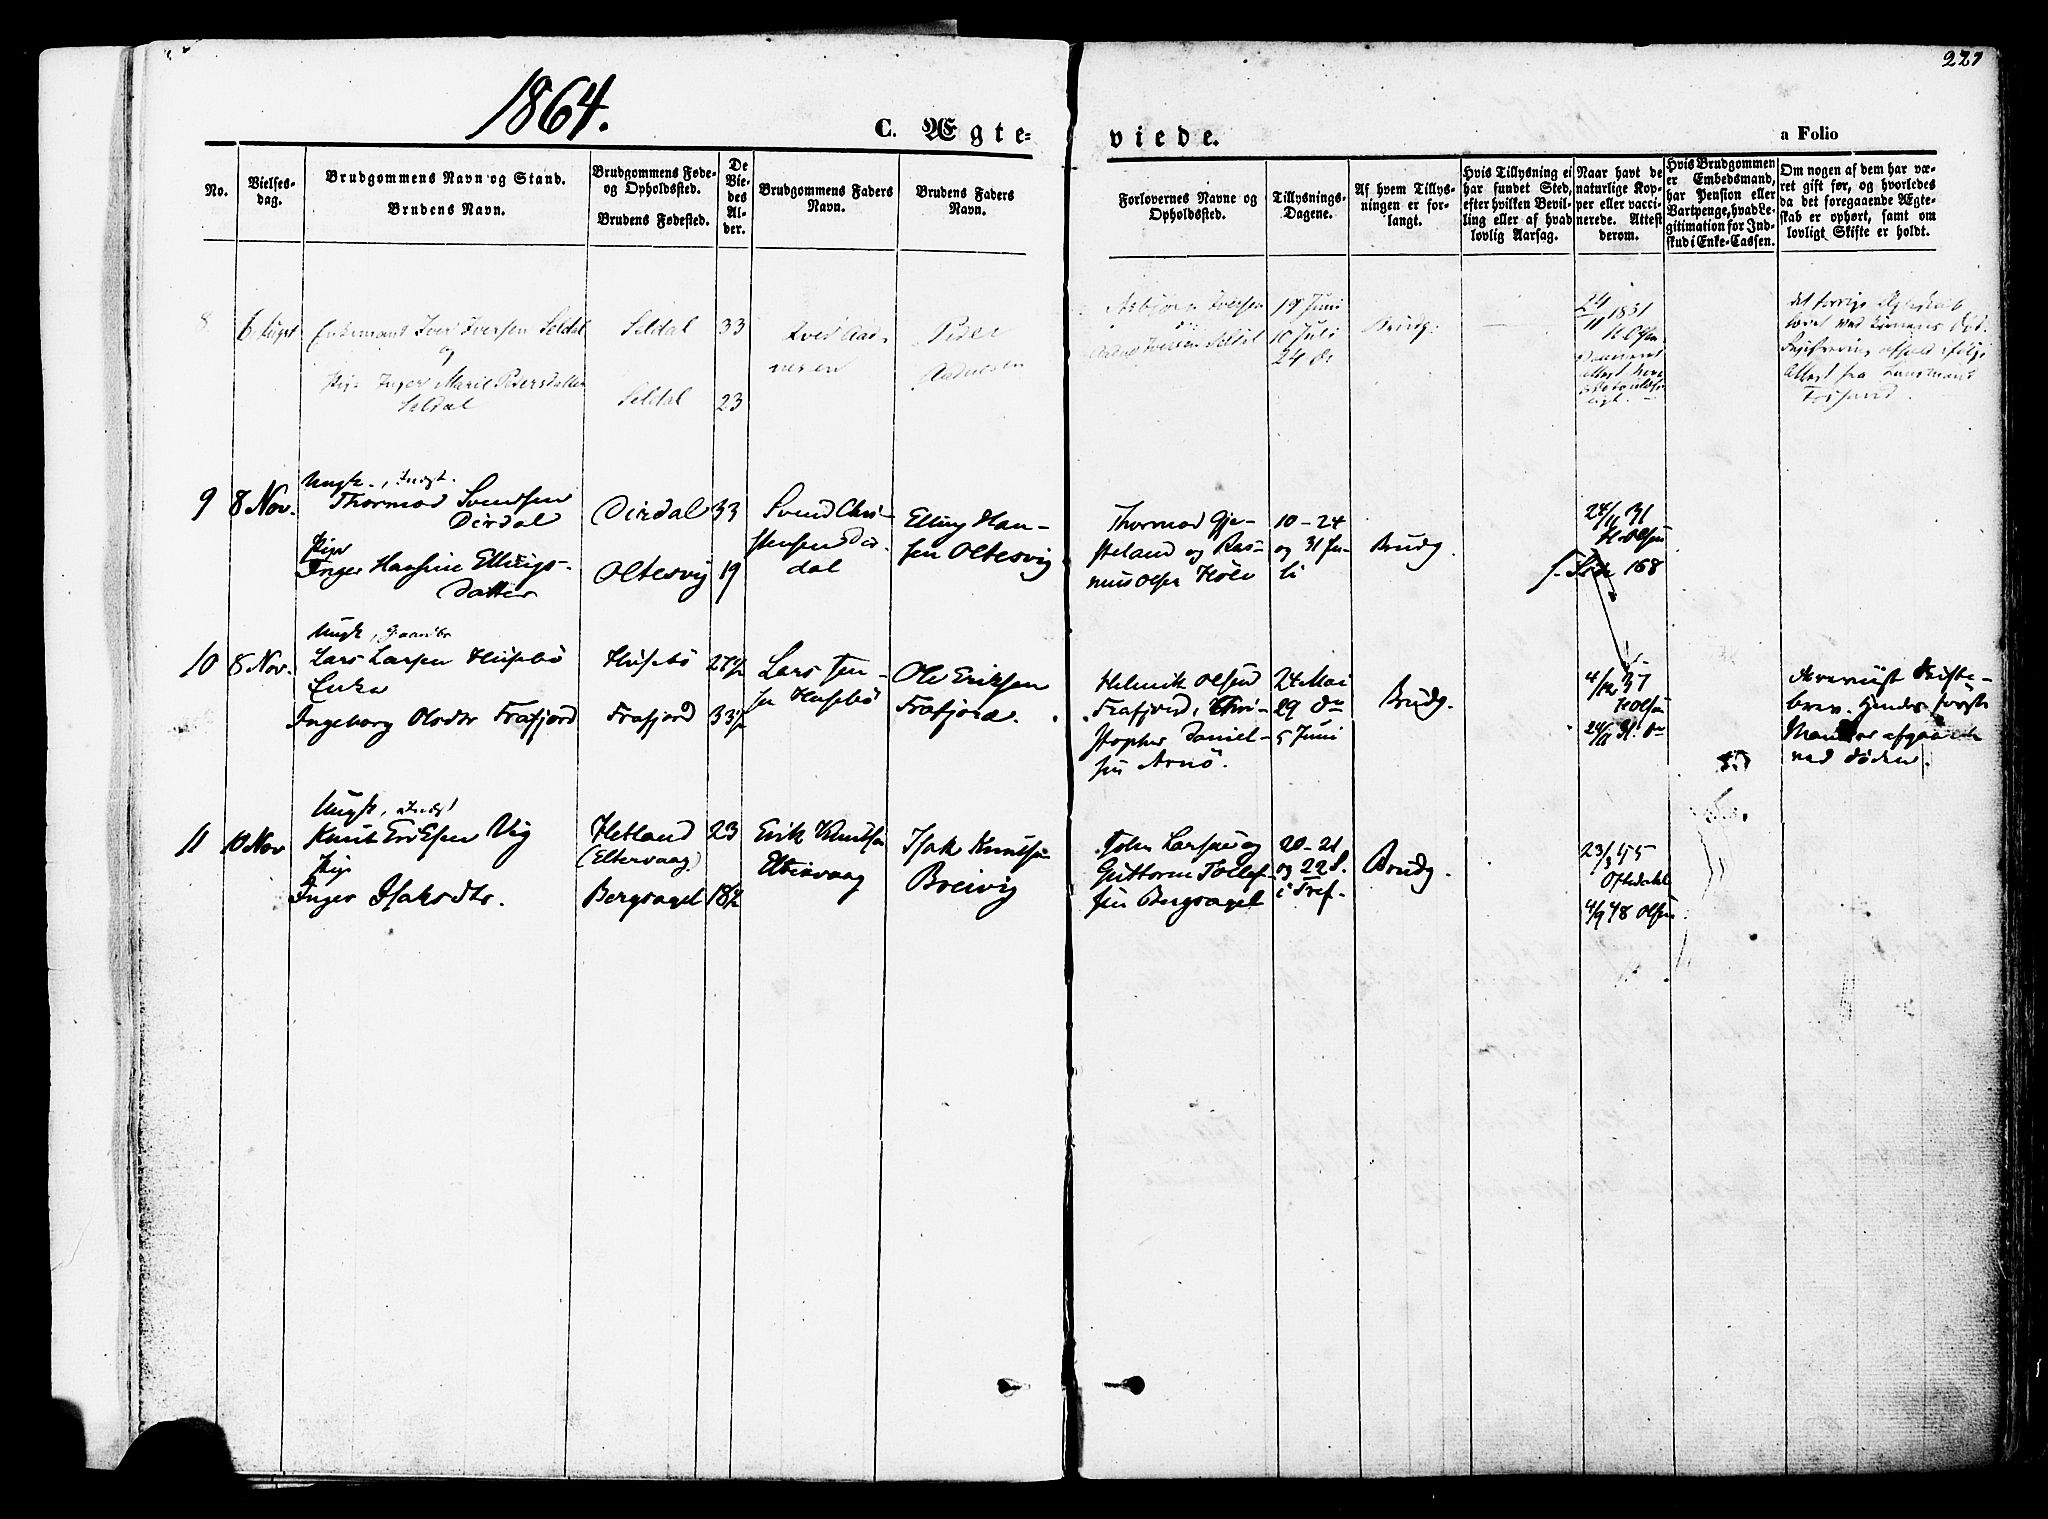 227
1864.
C. Ægte-
viede.
a Folio
No.
Vielses-
dag.
Brudgommens Navn og Stand.
Brudens Navn.
Brudgommens Føde-
og Opholdssted.
Brudens Fødested.
De
Vie-
des
Al-
der.
Brudgommens Faders
Navn.
Brudens Faders
Navn.
Forlovernes Navne og
Opholdssted.
Tillysnings-
Dagene.
Af hvem Tillys-
ningen er for-
langt.
Hvis Tillysning ei
har fundet Sted,
efter hvilken Bevil-
ling eller af hvad
lovlig Aarsag.
Naar havt de
naturlige Kop-
per eller vacci-
nerede. Attest
derom.
Hvis Brudgommen
er Embedsmand,
har Pension eller
Vartpenge, hvad Le-
gitimation for Ind-
skud i Enke-Cassen.
Om nogen af dem har væ-
ret gift før, og hvorledes
da det foregaaende Ægte-
skab er ophørt, samt om
lovligt Skifte er holdt.
8
Iver Iversen Seldal
og
Pige Inger Marie Pedersdatter
Seldal
Seldal
Seldal
33
23
Iver Aad-
nesen
Peder
Aadnesen
Asbjørn Iversen
Iversen Seldal
19 Juni
10 Juli
24 do
Brudg.
24/11 1831
H Olsen
9
8 Nov.
Ungk.,
Thormod Svendsen
Dirdal
Pige
Inger Hansine Ellings-
Datter
Dirdal
Oltesvig
33
19
Svend Chri-
stensen Dir-
dal
Elling Han-
sen Oltesvig
Thormod Gje-
steland og Ras-
mus Olsen Høle
10 - 24
og 31 Ju-
li
Brudg.
24/11 31
H. Olsen
f. Side 168
10
8 Nov.
Ungk,
Lars Larsen Husebø
Enke
Ingeborg Olsdtr Frafjord
Husebø
Frafjord
27 1/2
33 1/2
Lars Jen-
sen Husebø
Ole Eriksen
Frafjord.
Helmik Olsen
Frafjord, Chri-
stopher Daniel-
sen Arnø.
24 Mai
29 do
5 Juni
Brudg.
4/12 37
H Olsen
24/11 31. do
Skifte-
brev. Hendes første
Mand er afgaaet
ved Døden.
11
10 Nov
Ungk,
Knut Eriksen Vig
Pige
Inger Isaksdtr.
Hetland
(Eltervaag)
Bergsagel
23
18 1/2
Erik Knutsen
Eltervaag
Isak Knutsen
Breivig
John Larsen og
Guttorm Tollef-
sen Bergsagel
20 - 21
og 22 S.
i Tref.
Brudg.
23/3 55
Oftedahl
4/9 48 Olsen